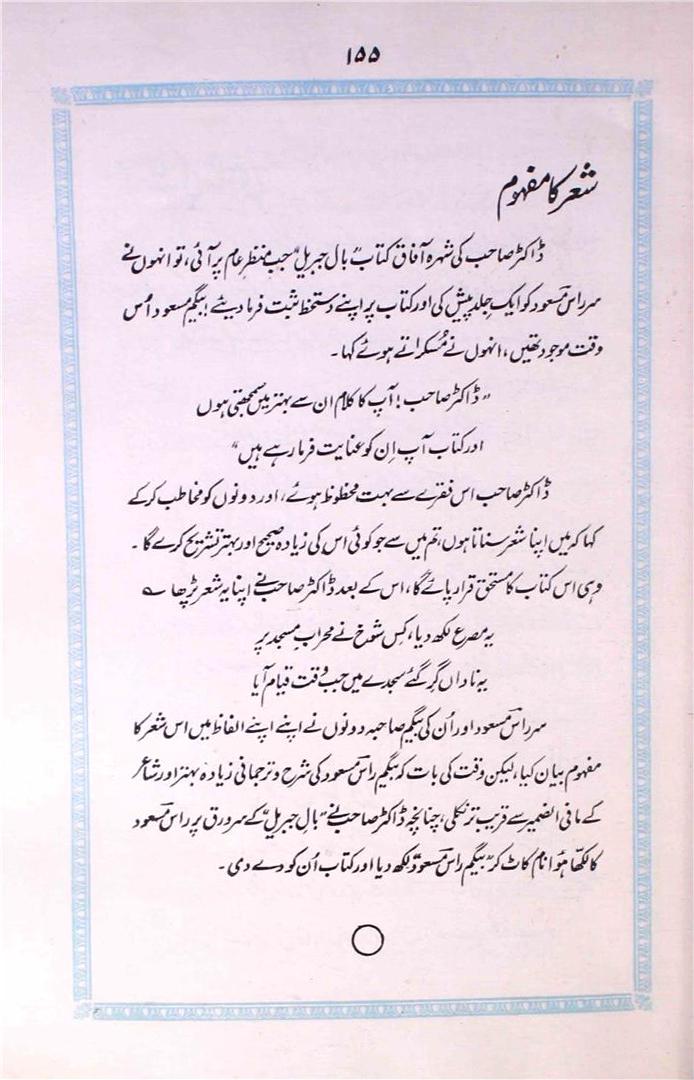 ۱۵۵
شعر کا مفہوم
ڈاکٹر صاحب کی شہرہ آفاق کتاب "بال جبریل" جب منظرِ عام پر آئی، تو انہوں نے
سر راس مسعود کو ایک جلد پیش کی اور کتاب پر اپنے دستخط ثبت فرما دیئے! بیگم مسعود اُس
وقت موجود تھیں، انہوں نے مُسکراتے ہوئے کہا۔
"ڈاکٹر صاحب! آپ کا کلام ان سے بہتر میں سمجھتی ہوں
اور کتاب آپ اِن کو عنایت فرما رہے ہیں"
ڈاکٹر صاحب اس فقرے سے بہت محظوظ ہوئے، اور دونوں کو مخاطب کر کے
کہا کہ میں اپنا شعر سناتا ہوں، تم میں سے جو کوئی اس کی زیادہ صحیح اور بہتر تشریح کرے گا۔
وہی اس کتاب کا مستحق قرار پائے گا، اس کے بعد ڈاکٹر صاحب نے اپنا یہ شعر پڑھا ؎
یہ مصرع لکھ دیا، کِس شوخ نے محرابِ مسجد پر
یہ ناداں گر گئے سجدے میں جب وقت قیام آیا
سر راس مسعود اور اُن کی بیگم صاحبہ دونوں نے اپنے اپنے الفاظ میں اس شعر کا
مفہوم بیان کیا، لیکن وقت کی بات کہ بیگم راس مسعود کی شرح و ترجمانی زیادہ بہتر اور شاعر
کے مافی الضمیر سے قریب تر نکلی، چنانچہ ڈاکٹر صاحب نے "بالِ جبریل" کے سرورق پر راس مسعود
کا لکھا ہُوا نام کاٹ کر "بیگم راس مسعود" لکھ دیا اور کتاب اُن کو دے دی۔